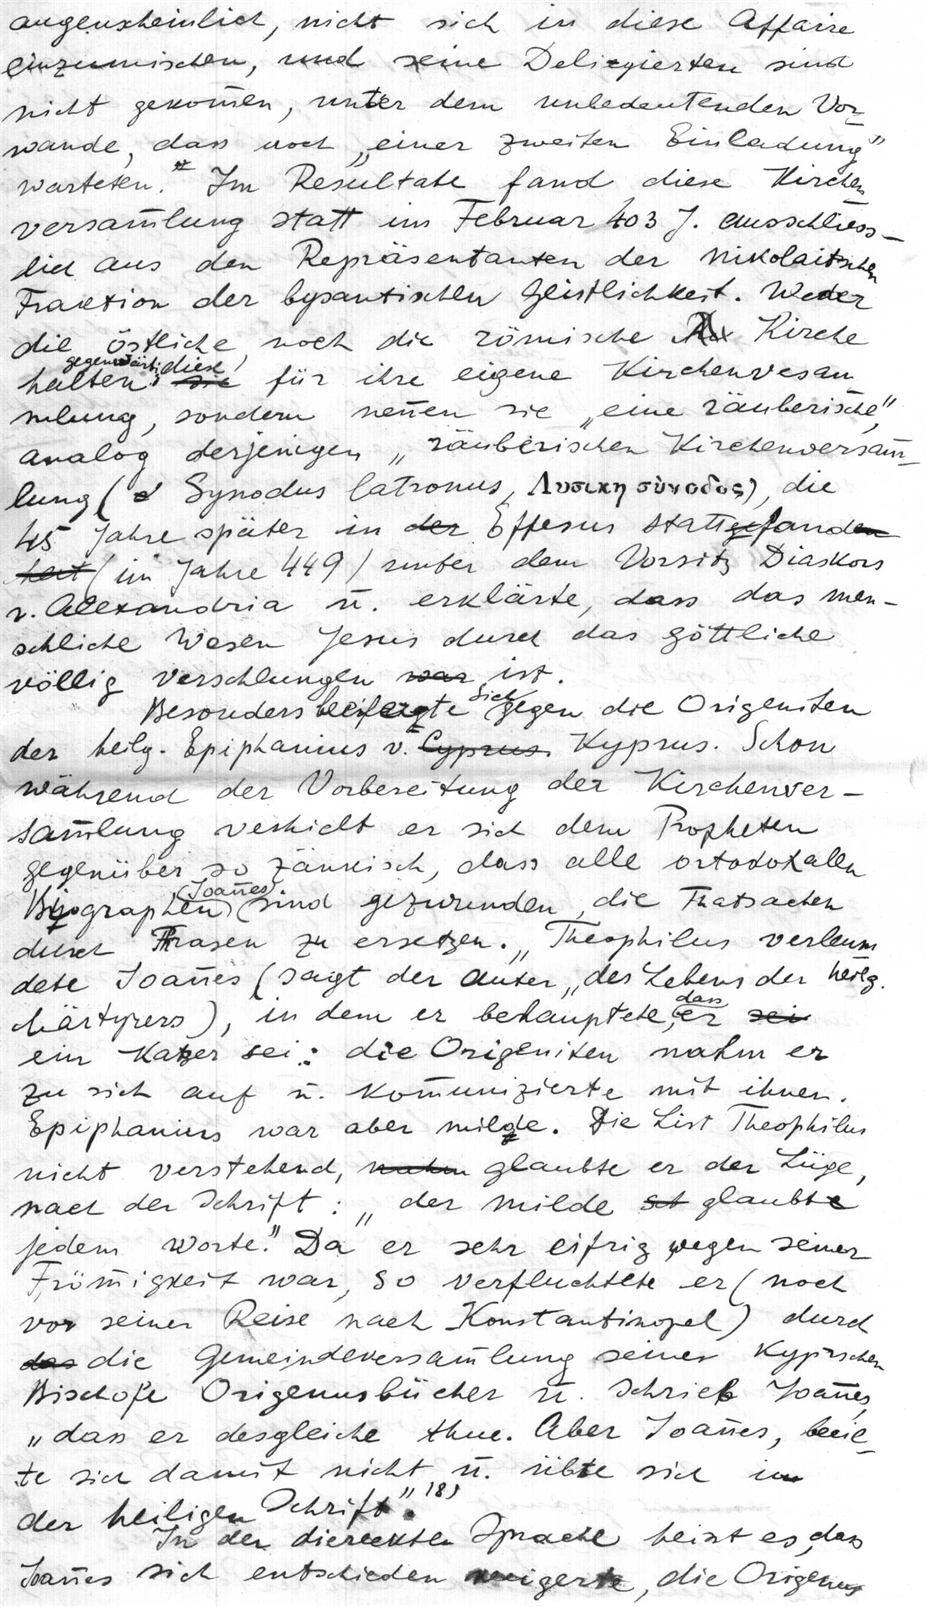 augenscheinlich, nicht sich in diese Affaire
einzumischen, und seine Deligierten sind
nicht gekom̄en, unter dem unbedeutenden Vor-
wande, dass noch „einer zweiten Einladung"
warteten.* Im Resultate fand diese Kirchen
versam̄lung statt im Februar 403 J. ausschliess-
lich aus den Repräsentanten der nikolaitschen
Fraktion der bysantischen Geistlichkeit. Weder
die östliche noch die römische Kirche
gegenwärtig diese
halten sie für ihre eigene Kirchenvesam
mlung, sondern nen̄en sie „eine räuberische",
analog derjenigen „räuberischen Kirchenversam̄-
lung (Synodus latronus, Λυσικη σὺνοδος), die
45 Jahre später in der Effesus stattgefanden
hat (im Jahre 449) unter dem Vorsitz Diaskors
v. Alexandria u. erklärte, dass das men-
schliche Wesen Jesus durch das göttliche
völlig verschlungen war ist.
sich
Besonders beeifergte gegen die Origeniten
der heilg. Epiphanius v. Cyprus Kyprus. Schon
während der Vorbereitung der Kirchenver-
sam̄lung verhielt er sich dem Propheten
gegenüber so zänkisch, dass alle ortodoxallen
(Joan̄es).
Biographen sind gezwunden, die Thatsachen
durch Frasen zu ersetzen. „Theophilus verleum
dete Joan̄es (sagt der Auter „des Lebens der heilg.
Märtyrers), in dem er behauptete, er sei
dass
ein Katzer sei: die Origeniten nahm er
zu sich auf u. kom̄unizierte mit ihnen.
Epiphanius war aber milde. Die List Theophilus
nicht verstehend, nahm glaubte er der Lüge,
nach der Schrift: „der milde glaubte
jedem Worte." Da er sehr eifrig wegen seiner
From̄igkeit war, so verfluchtete er (noch
vor seiner Reise nach Konstantinopel) durch
das die Gemeindeversam̄lung seiner kyprschen
Bischofe Origenusbücher u. schrieb Joan̄es,
„dass er desgleiche thue. Aber Joan̄es, beeil-
te sich damit nicht u. übte sich in
der heiligen Schrift". 18)
In der diereckten Sprache heisst es, dass
Joan̄es sich entschieden weigerte, die Origenus